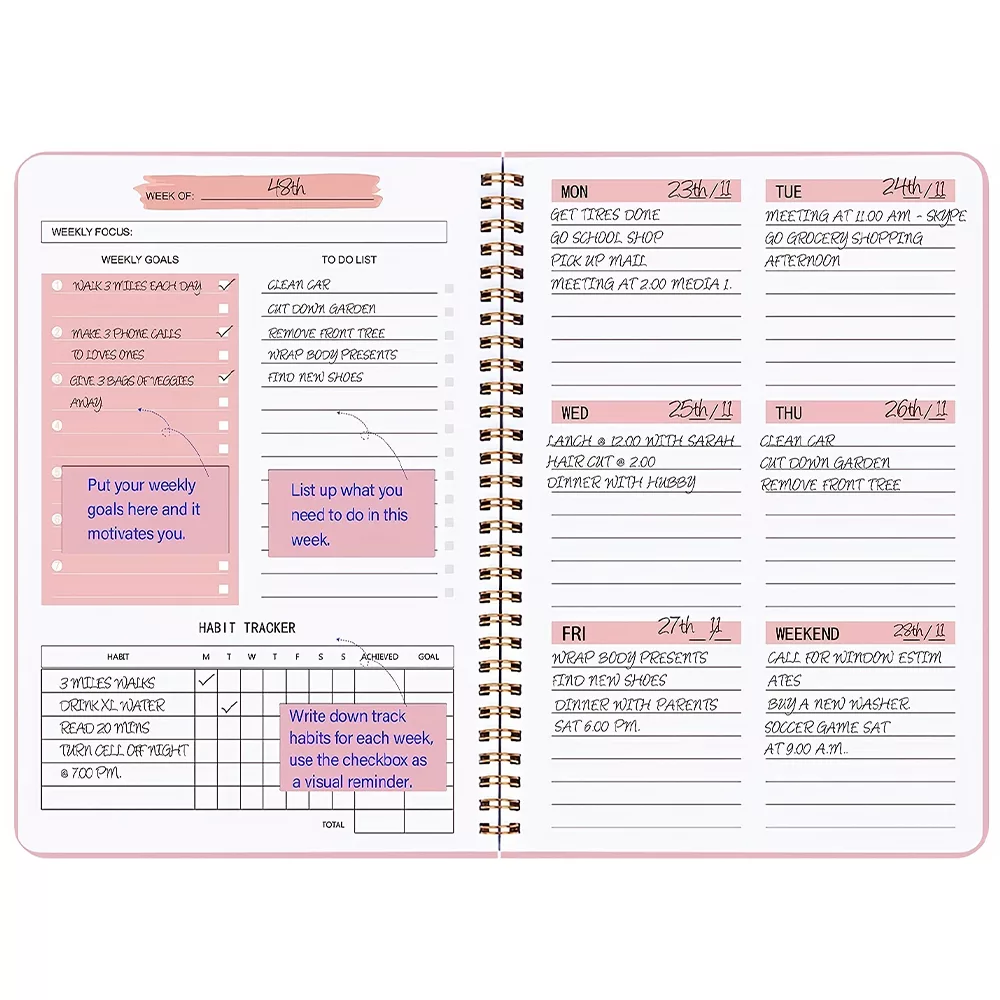 WEEK OF: 48th
WEEKLY FOCUS:
WEEKLY GOALS
1 WALK 3 MILES EACH DAY
2 MAKE 3 PHONE CALLS
TO LOVES ONES
3 GIVE 3 BAGS OF VEGGIES
AWAY
4
Put your weekly
goals here and it
motivates you.
7
TO DO LIST
CLEAN CAR
CUT DOWN GARDEN
REMOVE FRONT TREE
WRAP BODY PRESENTS
FIND NEW SHOES
List up what you
need to do in this
week.
HABIT TRACKER
HABIT M T W T F S S ACHIEVED GOAL
3 MILES WALKS
DRINK XL WATER
READ 20 MINS
TURN CELL OFF NIGHT
@ 7.00 PM.
Write down track
habits for each week,
use the checkbox as
a visual reminder.
TOTAL
MON 23th/11
GET TIRES DONE
GO SCHOOL SHOP
PICK UP MAIL
MEETING AT 2.00 MEDIA 1.
TUE 24th/11
MEETING AT 11.00 AM - SKYPE
GO GROCERY SHOPPING
AFTERNOON
WED 25th/11
LANCH @ 12.00 WITH SARAH
HAIR CUT @ 2.00
DINNER WITH HUBBY
THU 26th/11
CLEAN CAR
CUT DOWN GARDEN
REMOVE FRONT TREE
FRI 27th 11
WRAP BODY PRESENTS
FIND NEW SHOES
DINNER WITH PARENTS
SAT 6.00 PM.
WEEKEND 28th/11
CALL FOR WINDOW ESTIM
ATES
BUY A NEW WASHER.
SOCCER GAME SAT
AT 9.00 A.M..